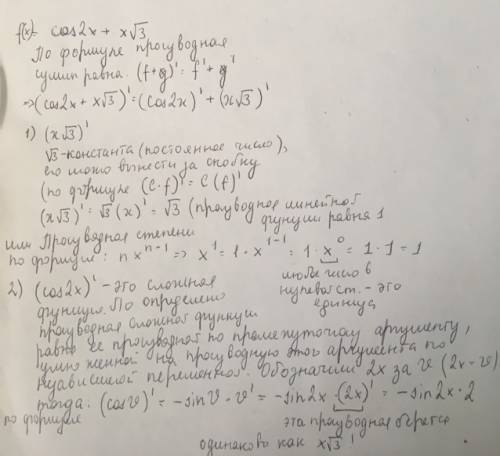 f(x)= cos2x + x√3
По формуле производная
сумм равна. (f+g)' = f' + g'
⇒ (cos2x + x√3)' = (cos2x)' + (x√3)'
1) (x√3)'
√3-константа (постоянное число),
его можно вынести за скобку
(по формуле (C·f)' = C(f)'
(x√3)' = √3 (x)' = √3 (производная линейной
функции равна 1
или Производная степени
по формуле: n x^{n-1} ⇒ x^1 = 1·x^{1-1} = 1·x^0 = 1·1 = 1
любое число в
нулевой ст. - это
единица
2) (cos2x)' - это сложная
функция. По определению
производная сложной функции
равна её производной по промежуточному аргументу,
умноженной на производную этого аргумента по
независимой переменной. Обозначим 2x за v (2x-v)
тогда: (cosv)' = -sinv·v' = -sin2x·(2x)' = -sin2x·2
по формуле
эта производная берется
одинаково как x√3'